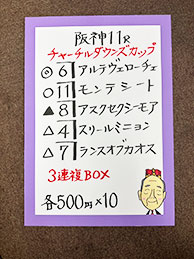 阪神11R
チャーチルダウンズカップ
◎6 アルテヴェローチェ
○11 モンテシート
▲8 アスクセクシーモア
△4 スリールミニョン
△7 ランスオブカオス
3連複BOX
各500円×10